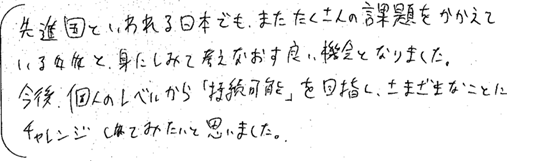 先進国といわれる日本でも、まだたくさんの課題をかかえて
いる事実と、身にしみて考えなおす良い機会となりました。
今後、個人のレベルから「持続可能」を目指し、さまざまなことに
チャレンジしてみたいと思いました。